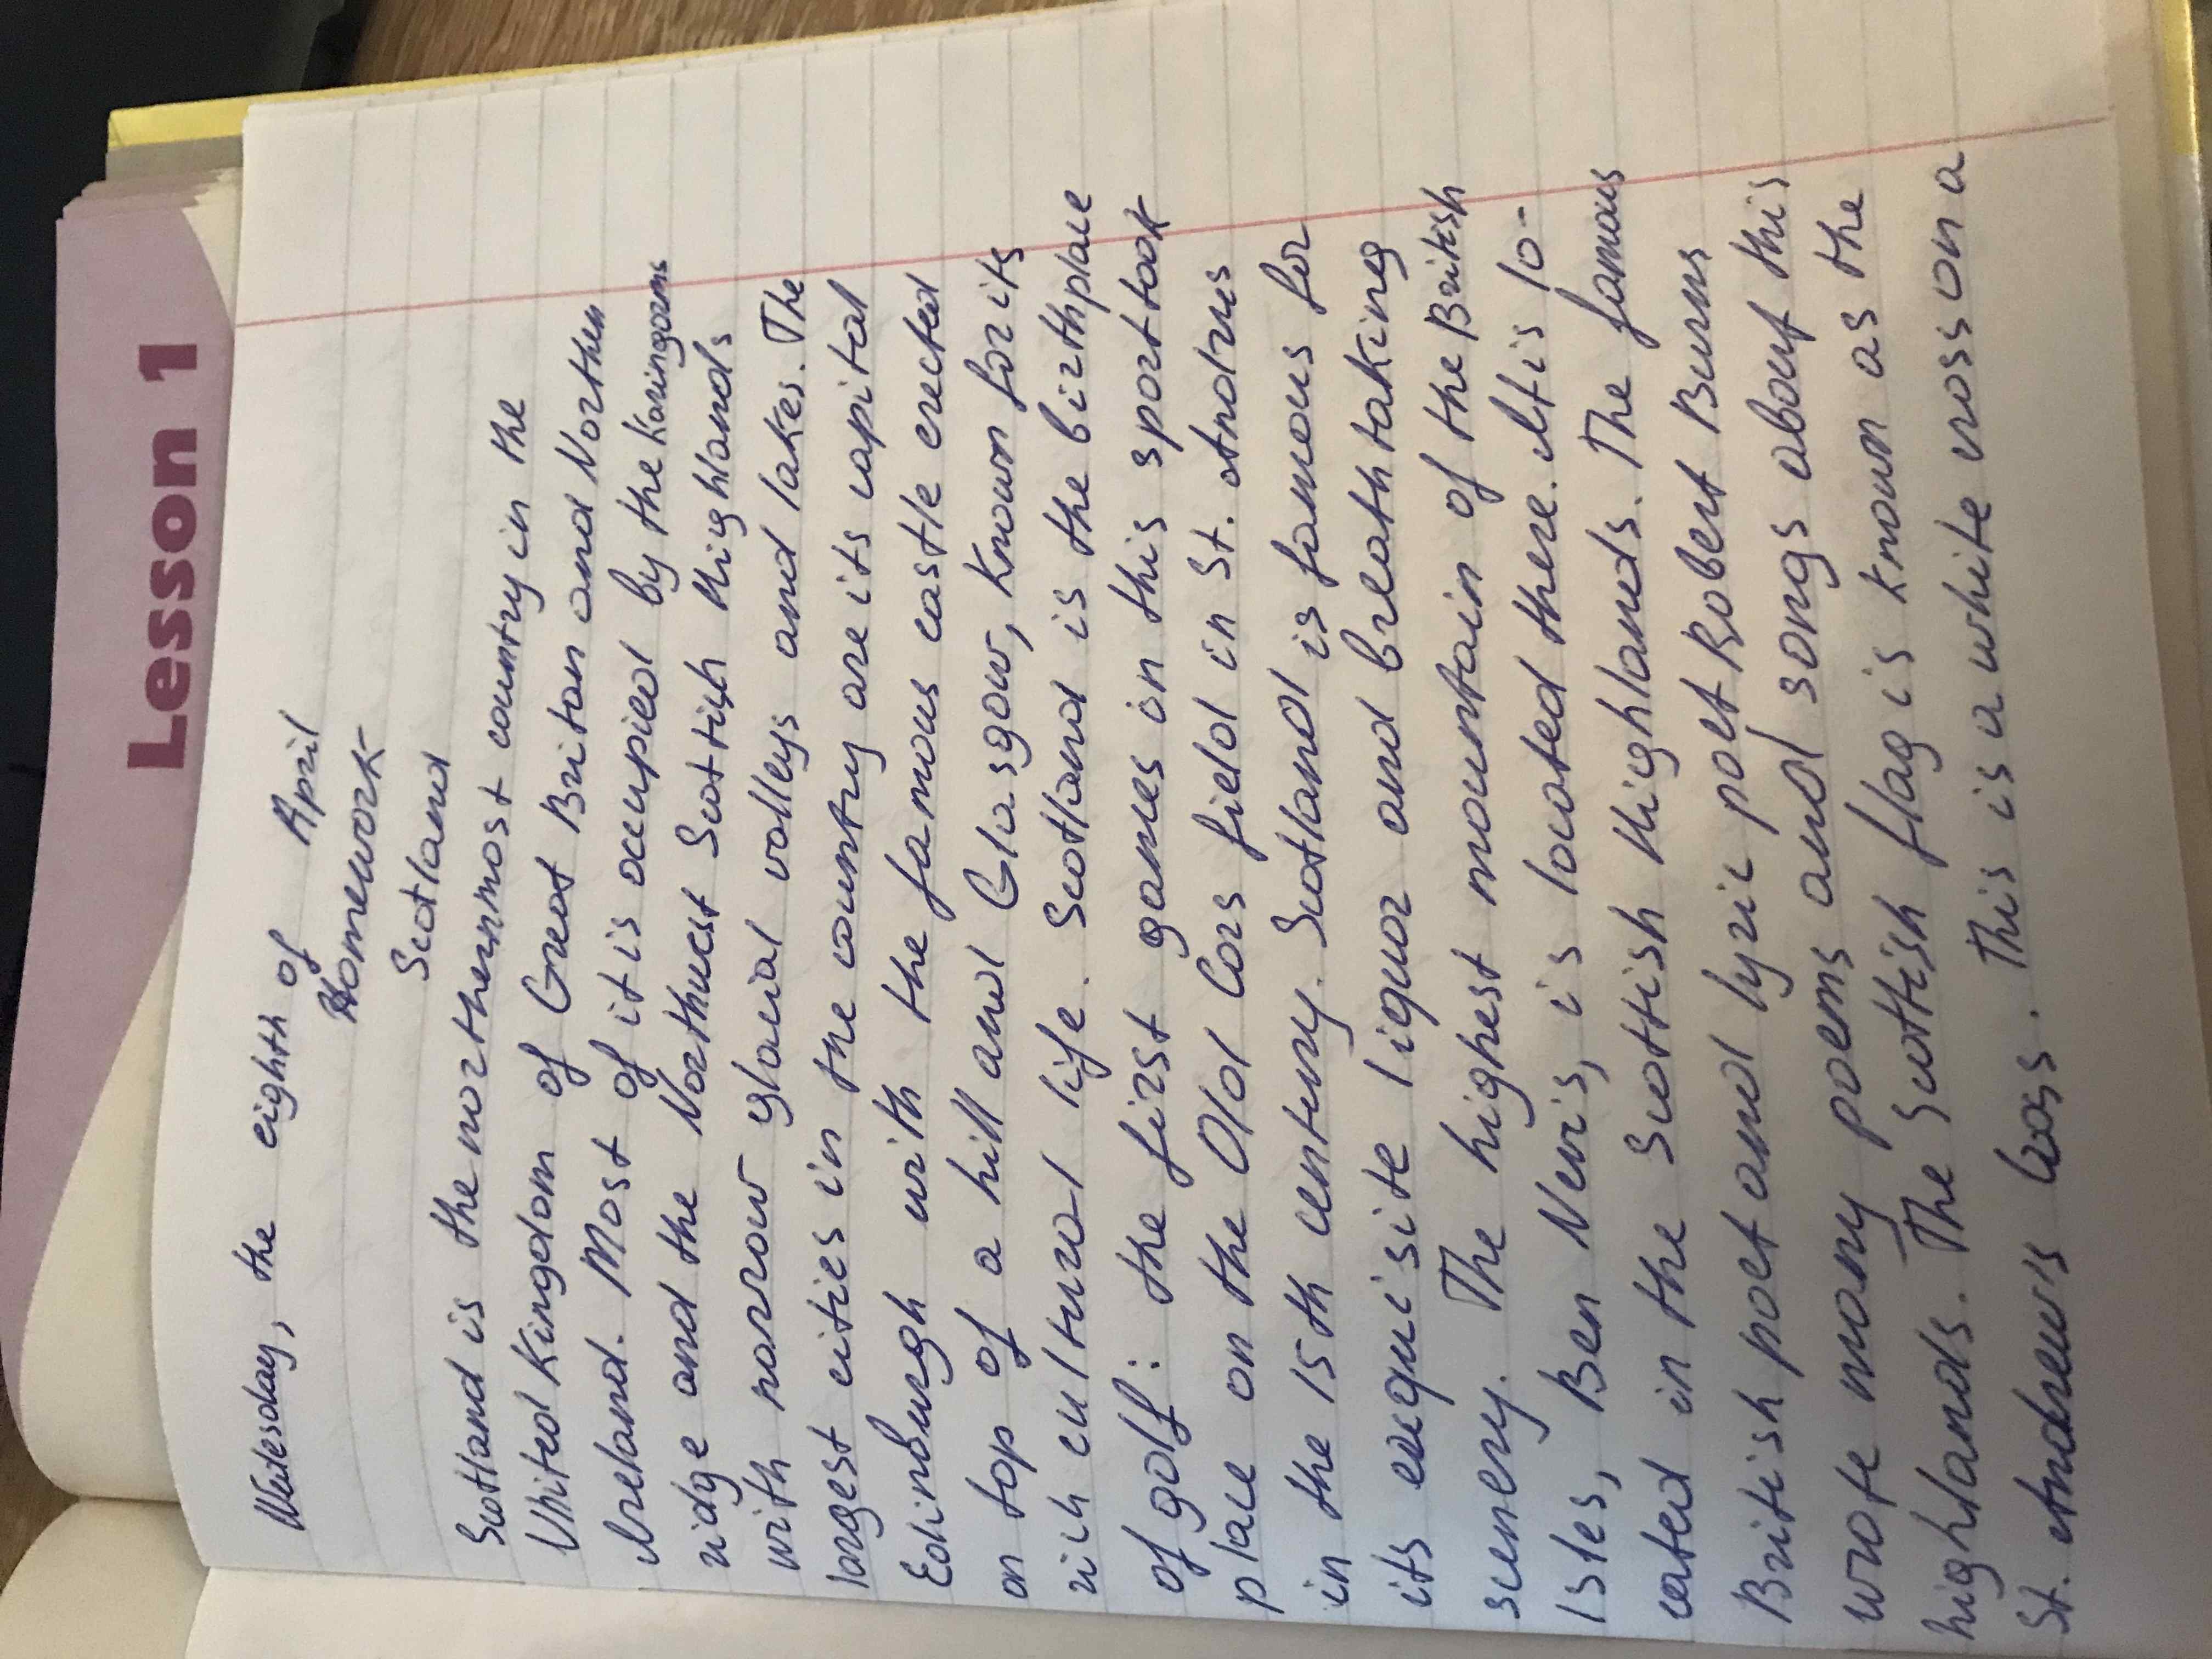 Lesson 1
Wednesday, the eighth of April
Homework
Scotland
Scotland is the northernmost country in the
United Kingdom of Great Britan and Northen
Ireland. Most of it is occupied by the Karingorm
ridge and the Northwest Scottish Highlands
with narrow glacial valleys and lakes. The
largest cities in the country are its capital
Edinburgh with the famous castle erected
on top of a hill and Glasgow, known for its
rich cultural life. Scotland is the birthplace
of golf: the first games in this sport took
place on the Old Cors field in St. Andrus
in the 15th century. Scotland is famous for
its exquisite liquor and breathtaking
scenery. The highest mountain of the British
Isles, Ben Nevis, is located there. It is lo-
cated in the Scottish Highlands. The famous
British poet and lyric poet Robert Burns
wrote many poems and songs about this
highlands. The Scottish flag is known as the
St. Andrew's Cross. This is a white cross on a